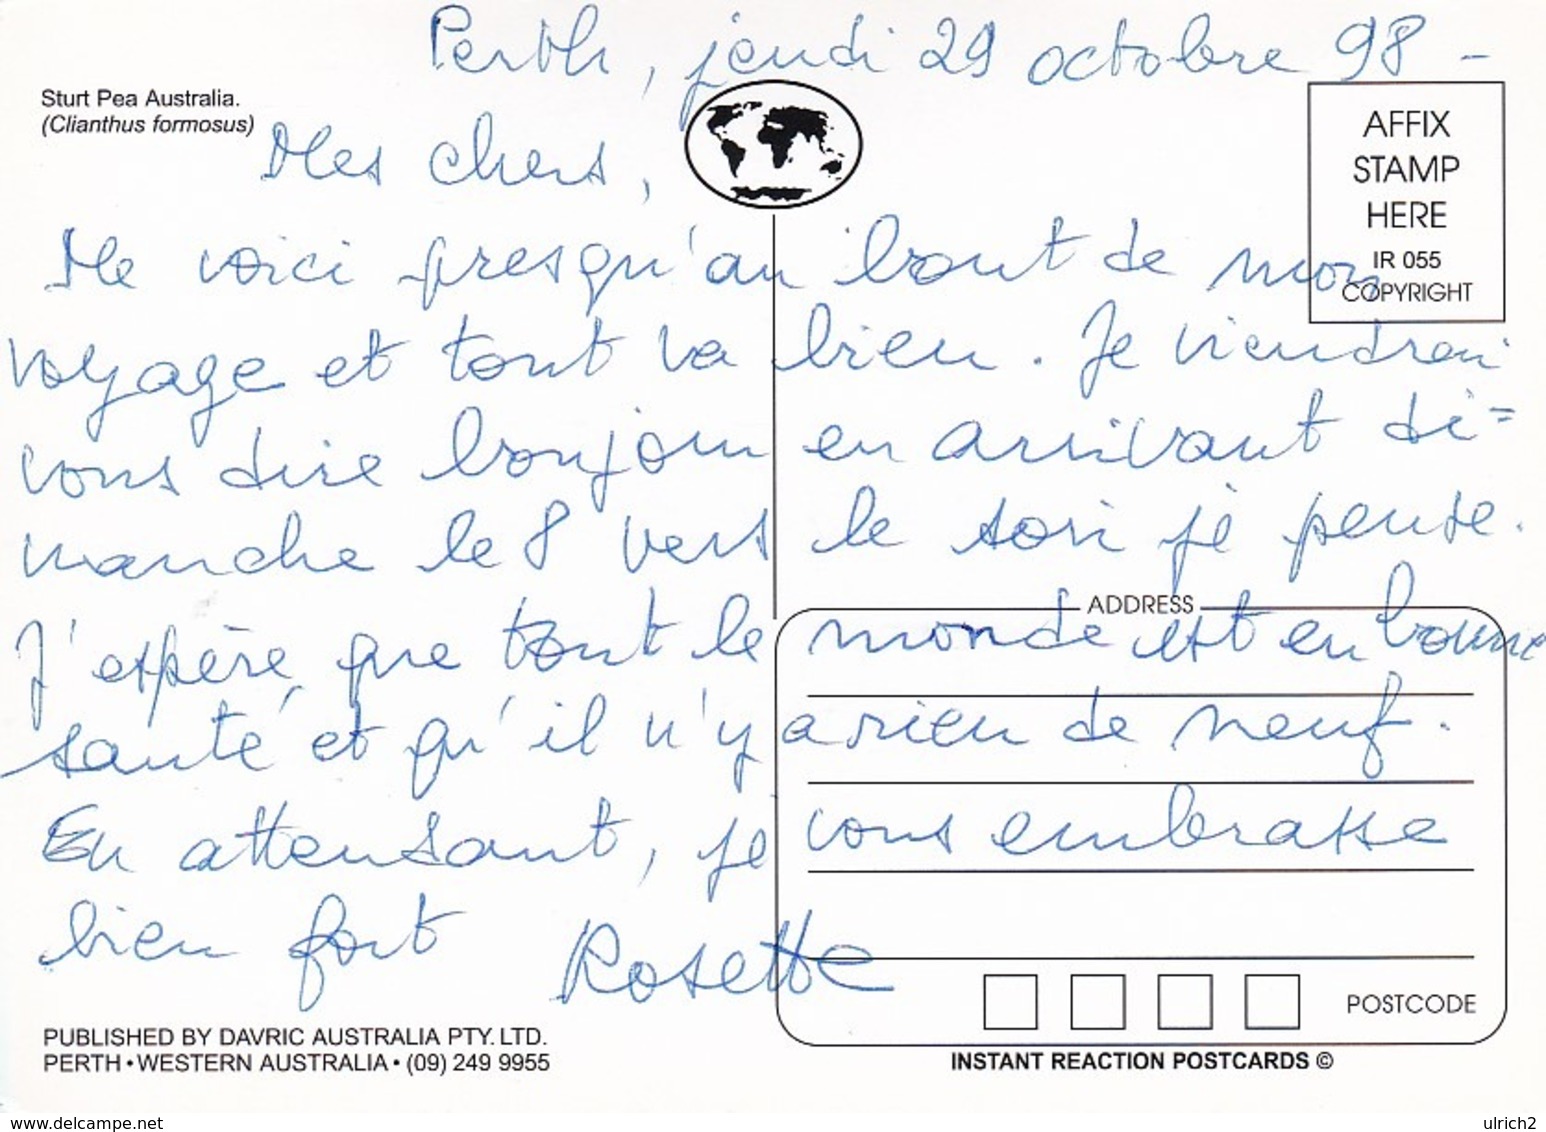 Perth, jeudi 29 octobre 98 -
Sturt Pea Australia.
(Clianthus formosus)
AFFIX
STAMP
HERE
IR 055
COPYRIGHT
Mes chers,
Me voici presqu'au bout de mon
voyage et tout va bien. Je viendrai
vous dire bonjour en arrivant di=
manche le 8 vers le soir je pense.
ADDRESS
J'espère que tout le monde est en bonne
santé et qu'il n'y a rien de neuf.
En attendant, je vous embrasse
bien fort Rosette
POSTCODE
PUBLISHED BY DAVRIC AUSTRALIA PTY. LTD.
PERTH • WESTERN AUSTRALIA • (09) 249 9955
INSTANT REACTION POSTCARDS ©
www.delcampe.net
ulrich2